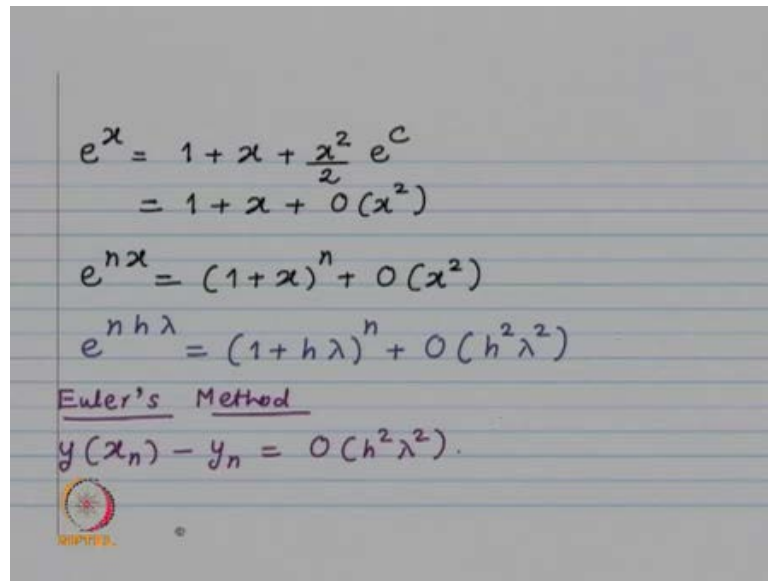 e^x = 1 + x + x²/2 e^c
= 1 + x + O(x²)
e^{nx} = (1+x)^n + O(x²)
e^{nhλ} = (1+hλ)^n + O(h²λ²)
Euler's Method
y(x_n) - y_n = O(h²λ²).